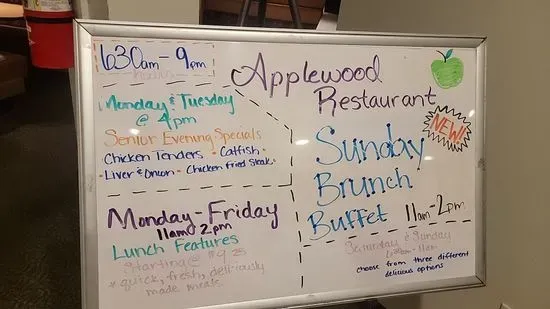 630am - 9pm
Monday & Tuesday
@ 4pm
Senior Evening Specials
Chicken Tenders • Catfish •
• Liver & Onion • Chicken Fried Steak •
Monday - Friday
11am 2pm
Lunch Features
Starting @
* quick, fresh, deliciously
made meals
Applewood
Restaurant
NEW!
Sunday
Brunch
Buffet 11am - 2pm
Saturday & Sunday
choose from three different
delicious options